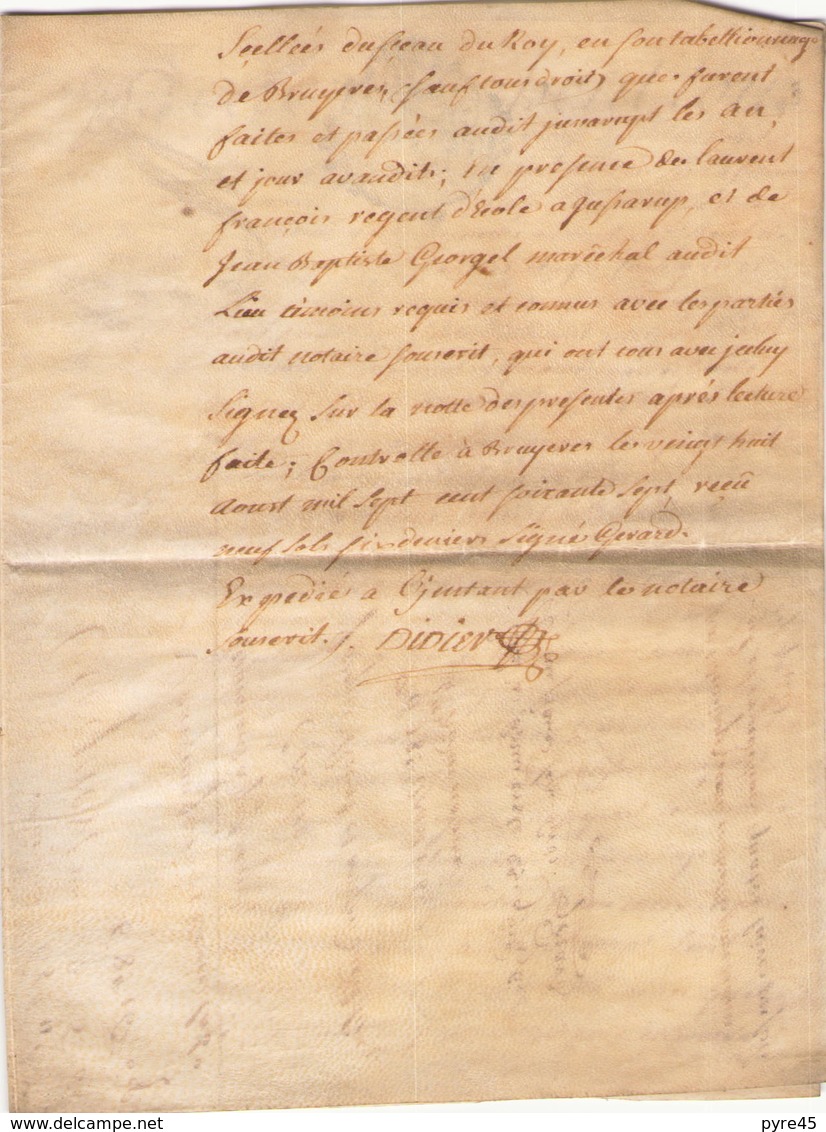 Scellées du sceau du Roy, en son tabellionnage
de Bruyeres, sauf tous droits, que furent
faites et passées audit jussarupt les an,
et jour avandits; en presence de laurent
françois regent d'Ecole a jussarup, et de
Jean Baptiste Georgel maréchal audit
Lieu témoins requis et connus avec les parties
audit notaire souscrit, qui ont tous avec jceluy
Signez sur la notte des presentes aprés lecture
faite; Controllé à Bruyeres les vingt huit
aoust mil sept cent soixante sept, reçu
neuf sols six deniers signé Gerard.
Expediés a l'jnstant par le notaire
souscrit. /. DIDIER
pyre45